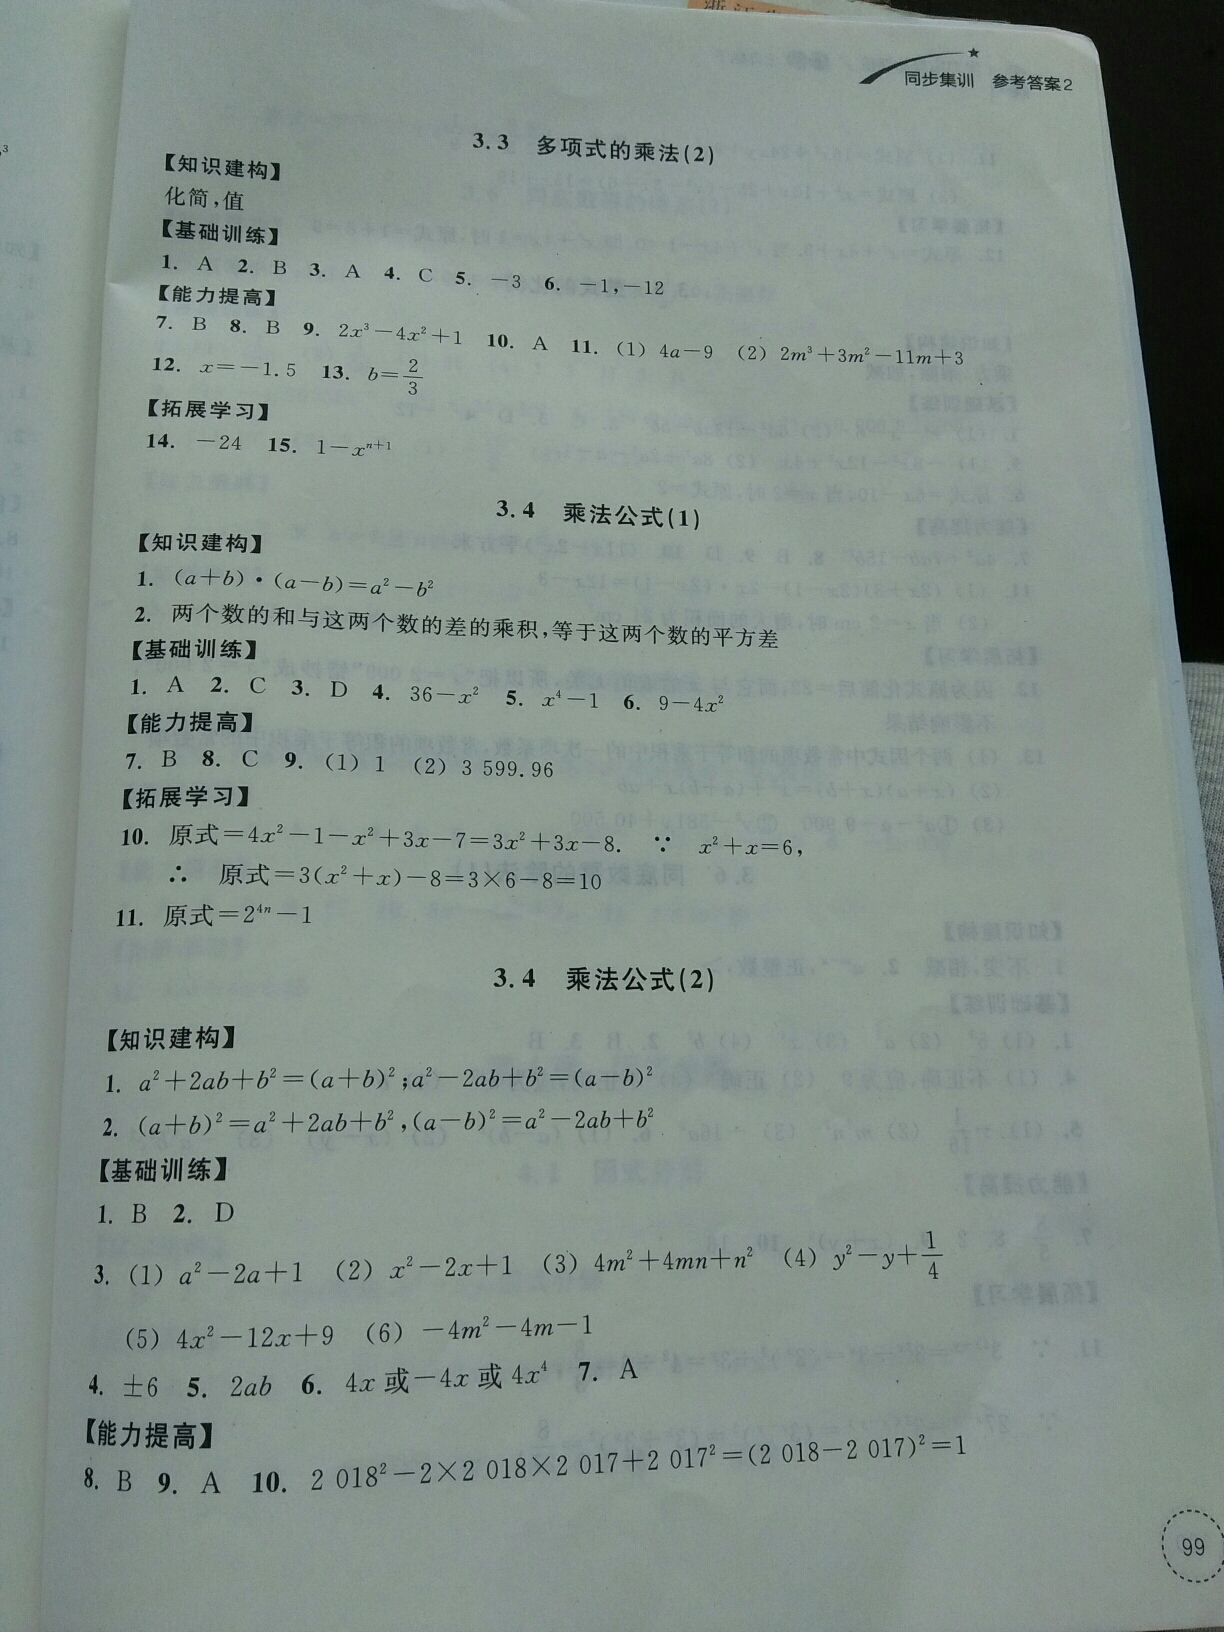 同步集训 参考答案2
3.3 多项式的乘法(2)
【知识建构】
化简,值
【基础训练】
1. A 2. B 3. A 4. C 5. －3 6. －1,－12
【能力提高】
7. B 8. B 9. 2x³－4x²＋1 10. A 11. (1) 4a－9 (2) 2m³＋3m²－11m＋3
12. x＝－1.5 13. b＝2/3
【拓展学习】
14. －24 15. 1－xⁿ⁺¹
3.4 乘法公式(1)
【知识建构】
1. (a＋b)·(a－b)＝a²－b²
2. 两个数的和与这两个数的差的乘积,等于这两个数的平方差
【基础训练】
1. A 2. C 3. D 4. 36－x² 5. x⁴－1 6. 9－4x²
【能力提高】
7. B 8. C 9. (1) 1 (2) 3 599.96
【拓展学习】
10. 原式＝4x²－1－x²＋3x－7＝3x²＋3x－8. ∵ x²＋x＝6,
∴ 原式＝3(x²＋x)－8＝3×6－8＝10
11. 原式＝2⁴ⁿ－1
3.4 乘法公式(2)
【知识建构】
1. a²＋2ab＋b²＝(a＋b)²;a²－2ab＋b²＝(a－b)²
2. (a＋b)²＝a²＋2ab＋b²,(a－b)²＝a²－2ab＋b²
【基础训练】
1. B 2. D
3. (1) a²－2a＋1 (2) x²－2x＋1 (3) 4m²＋4mn＋n² (4) y²－y＋1/4
(5) 4x²－12x＋9 (6) －4m²－4m－1
4. ±6 5. 2ab 6. 4x或－4x或4x⁴ 7. A
【能力提高】
8. B 9. A 10. 2 018²－2×2 018×2 017＋2 017²＝(2 018－2 017)²＝1
99